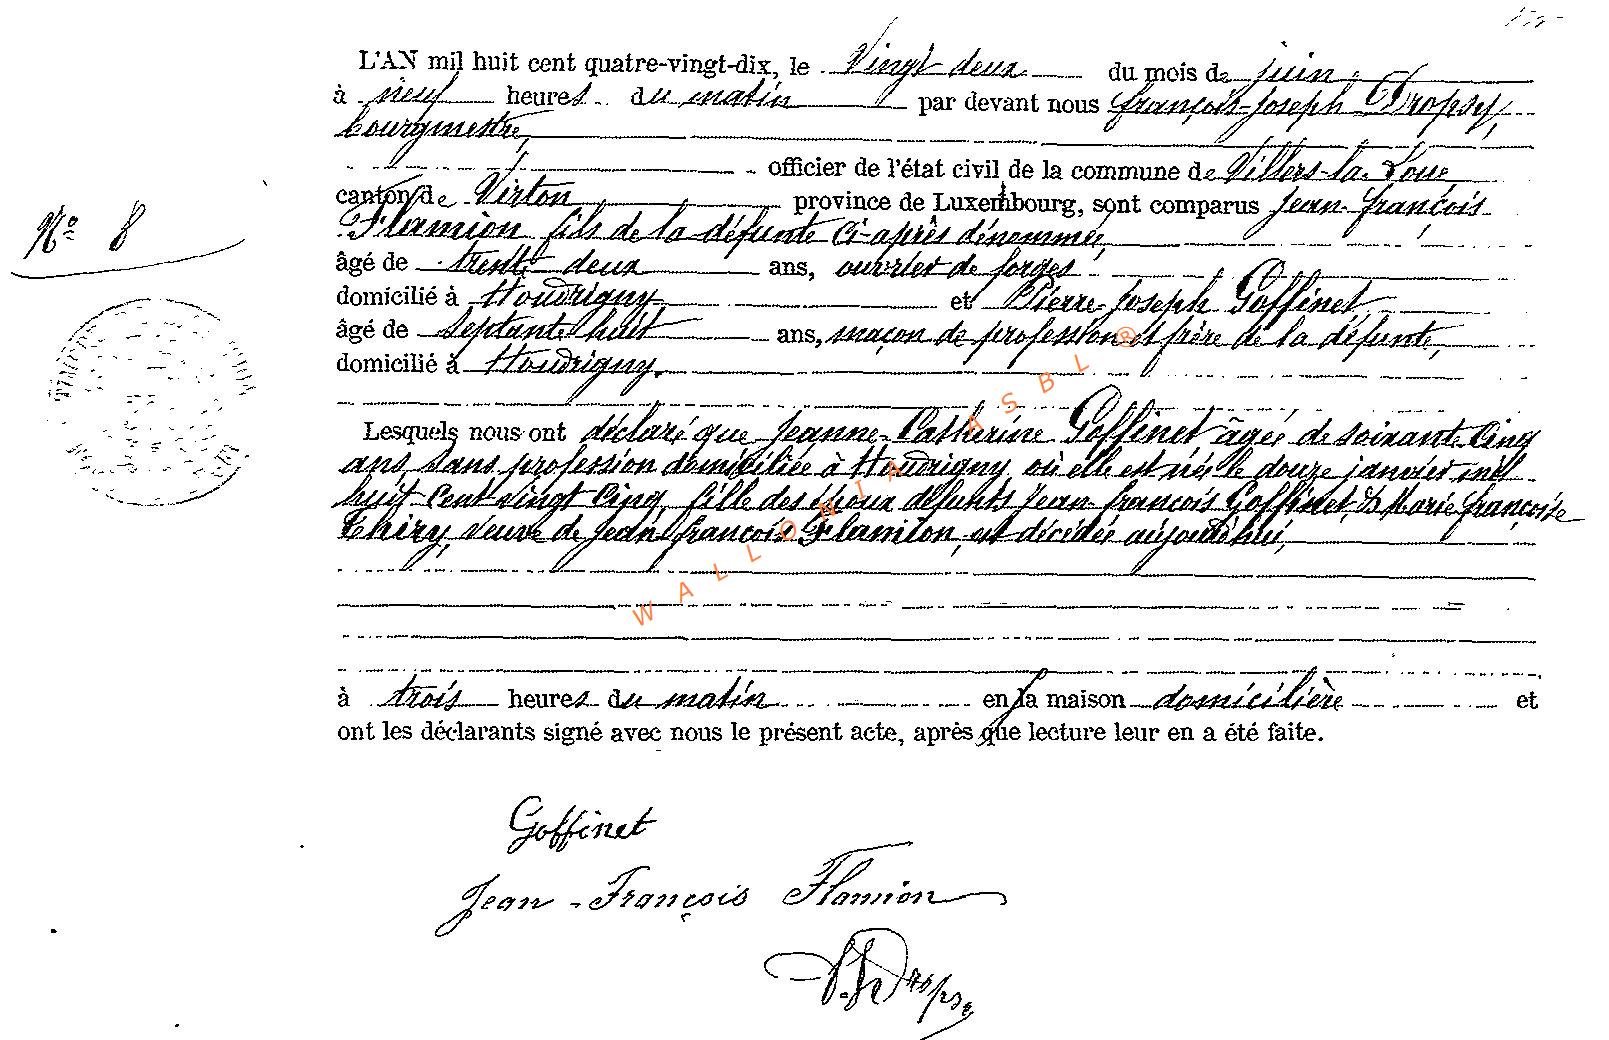 L'AN mil huit cent quatre-vingt-dix, le Vingt deux du mois de juin
à neuf heures du matin par devant nous françois-Joseph Dropsy,
bourgmestre,
officier de l'état civil de la commune de Villers-la-Loue
canton de Virton province de Luxembourg, sont comparus Jean-françois
Flamion fils de la défunte ci-après dénommée,
Nº 8
âgé de trente deux ans, ouvrier de forges
domicilié à Houdrigny et Pierre-Joseph Goffinet,
âgé de septante huit ans, maçon de profession et frère de la défunte,
domicilié à Houdrigny.
Lesquels nous ont déclaré que Jeanne-Catherine Goffinet âgée de soixante-cinq
ans, sans profession domiciliée à Houdrigny où elle est née le douze janvier mil
huit cent vingt cinq, fille des époux défunts Jean-françois Goffinet & Marie françoise
Thiry, veuve de Jean-françois Flamion, est décédée aujourd'hui,
à trois heures du matin en la maison domicilière et
ont les déclarants signé avec nous le présent acte, après que lecture leur en a été faite.
WALLONIA ASBL ®
Goffinet
Jean-François Flamion
Dropsy